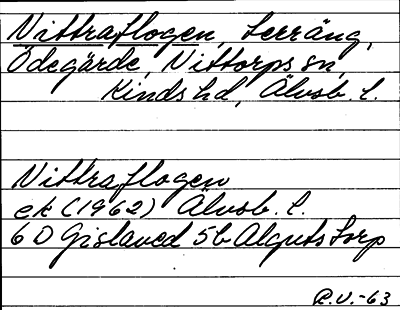 Nittraflogen, terräng,
Ödegärde, Nittorps sn,
Kinds hd, Älvsb. l.
Nittraflogen
ek (1962) Älvsb. l.
6 D Gislaved 5b Alguts torp
R.V.-63